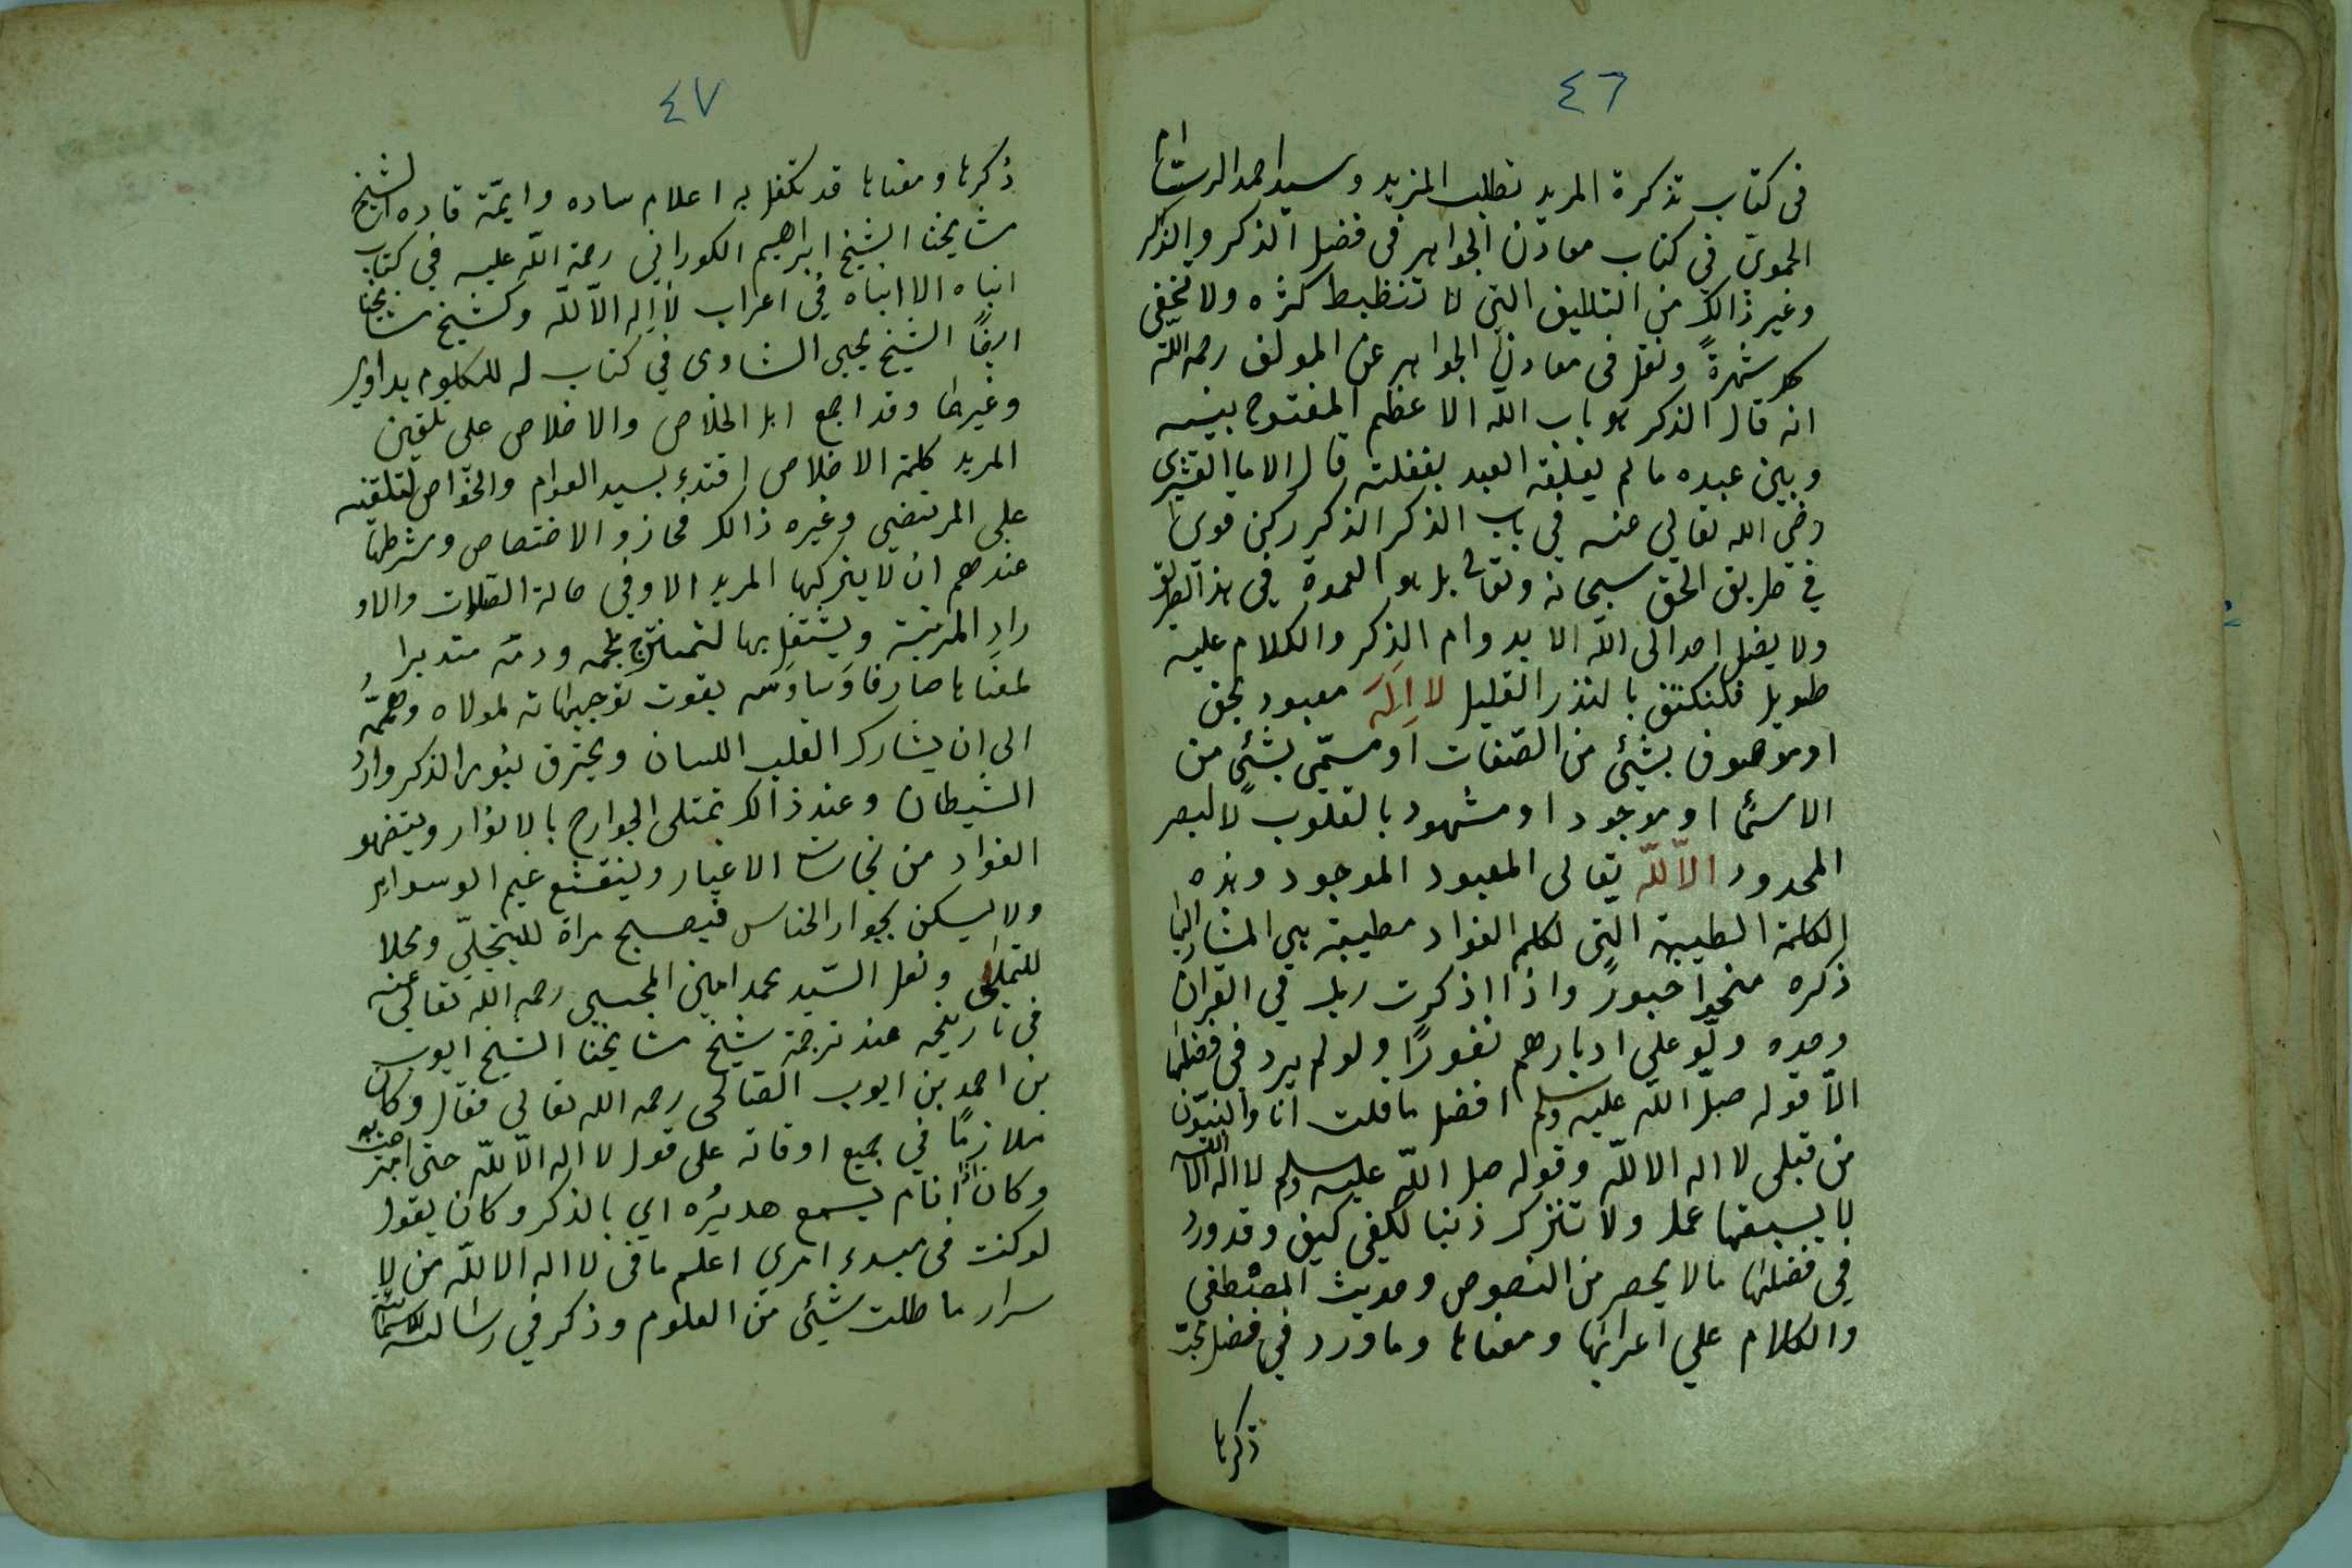 ٤٦
فى كتاب تذكرة المريد لطلب المزيد وسيد احمد الرسام
الحموي في كتاب معادن الجواهر فى فضل الذكر والذكر
وغير ذالك من التاليف التى لا تنظبط كثره ولا تخفى
شهرةً ونقل فى معادن الجواهر عن المولف رحمه الله
انه قال الذكر هو باب الله الاعظم المفتوح بينه
وبين عبده ما لم يغلقه العبد بغفلته قال الاما القشيرى
رضى الله تعالي عنه في باب الذكر الذكر ركن قوى
في طريق الحق سبحانه وتعالى بل هو العمدة فى هذ الطريق
ولا يصل احد الى الله الا بدوام الذكر والكلام عليه
طويل فلنكتف بالنذر القليل لا اله معبود بحق
او موصوف بشئي من الصّفات او مسمّى بشئي من
الاسمًا او موجود او مشهود بالقلوب لا لبصر
المحدود الا لله تعالى المعبود الموجود وهذه
الكلمة الطيبة التى لكلم الفواد مطيبة هي المشار اليها
ذكره منحوا حبورً واذا اذكرت ربك في القران
وحده ولّو على ادبارهم نفورًا ولو لم يرد فى فضلها
الّا قوله صلّ الله عليه وسلم افضل ما قلت انا والنبيّون
من قبلى لا اله الا لله وقوله صل الله عليه وسلم لا اله الا الله
لا يسبقها عمل ولا تترك ذنبا لكفى كيف وقد ورد
في فضلها ما لا يحصر من النصوص وحديث المصطفى
والكلام على اعرابها ومعناها وما ورد في فضل
ذكرها
٤٧
ذكرها ومعناها قد تكفل به اعلام ساده وايمّة قاده الشيخ
مشايخنا الشيخ ابراهيم الكوراني رحمة الله عليه في كتاب
انباه الا انباه في اعراب لا اله الا لله وكشيخ مشايخنا
ايضًا الشيخ يحيى الشاوى في كتاب له للكلوم يداوي
وغيرهما وقد اجمع اهل الخلاص والاخلاص على تلقين
المريد كلمة الاخلاص اقتدء بسيد العوام والخواص لتلقينه
على المرتضى وغيره ذالك فحاز و الاختصاص وشرطها
عندهم ان لا يتركها المريد الا وفي حالة الصلات والاو
راد المرتبة ويشتغل بها لتمتزج بلحمه ودمّه متدبرا
لمعناها صارفا وساوسّه بقوت توجيهاته لمولاه وهمّه
الى ان يشارك القلب اللسان ويحترق بنور الذكر وارد
الشيطان وعند ذالك تمتلى الجوارح بالانوار ويتضهو
الفواد من نجاسة الاغيار وينقشع غيم الوسواس
ولا يسكن بجوار الخناس فيصبح مراة للتجلّي ومحلا
للتملى ونقل السّيد محمد امين المحبى رحمه الله تعالى عنه
فى تاريخه عند ترجمة شيخ مشايخنا الشيخ ايوب
بن احمد بن ايوب الصالحى رحمه الله تعالى فقال وكان
ملازمًا في جميع اوقاته على قول لا اله الا لله حتى امتزجت به
وكان اذا نام يسمع هديرُه اي بالذكر وكان يقول
لو كنت فى مبدء امري اعلم ما فى لا اله الا لله من لا
سرار ما طلت شيئى من العلوم وذكر في رسالته